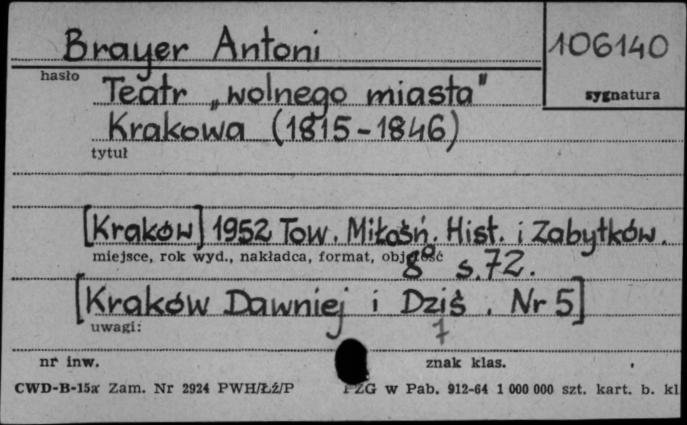 Brayer Antoni
106140
hasło
sygnatura
Teatr „wolnego miasta"
Krakowa (1815-1846)
tytuł
[Kraków] 1952 Tow. Miłośn. Hist. i Zabytków.
miejsce, rok wyd., nakładca, format, objętość
8° s.72.
[Kraków Dawniej i Dziś. Nr 5]
uwagi:
7
nr inw.
znak klas.
CWD-B-15a Zam. Nr 2924 PWH/Łż/P
PZG w Pab. 912-64 1 000 000 szt. kart. b. kl